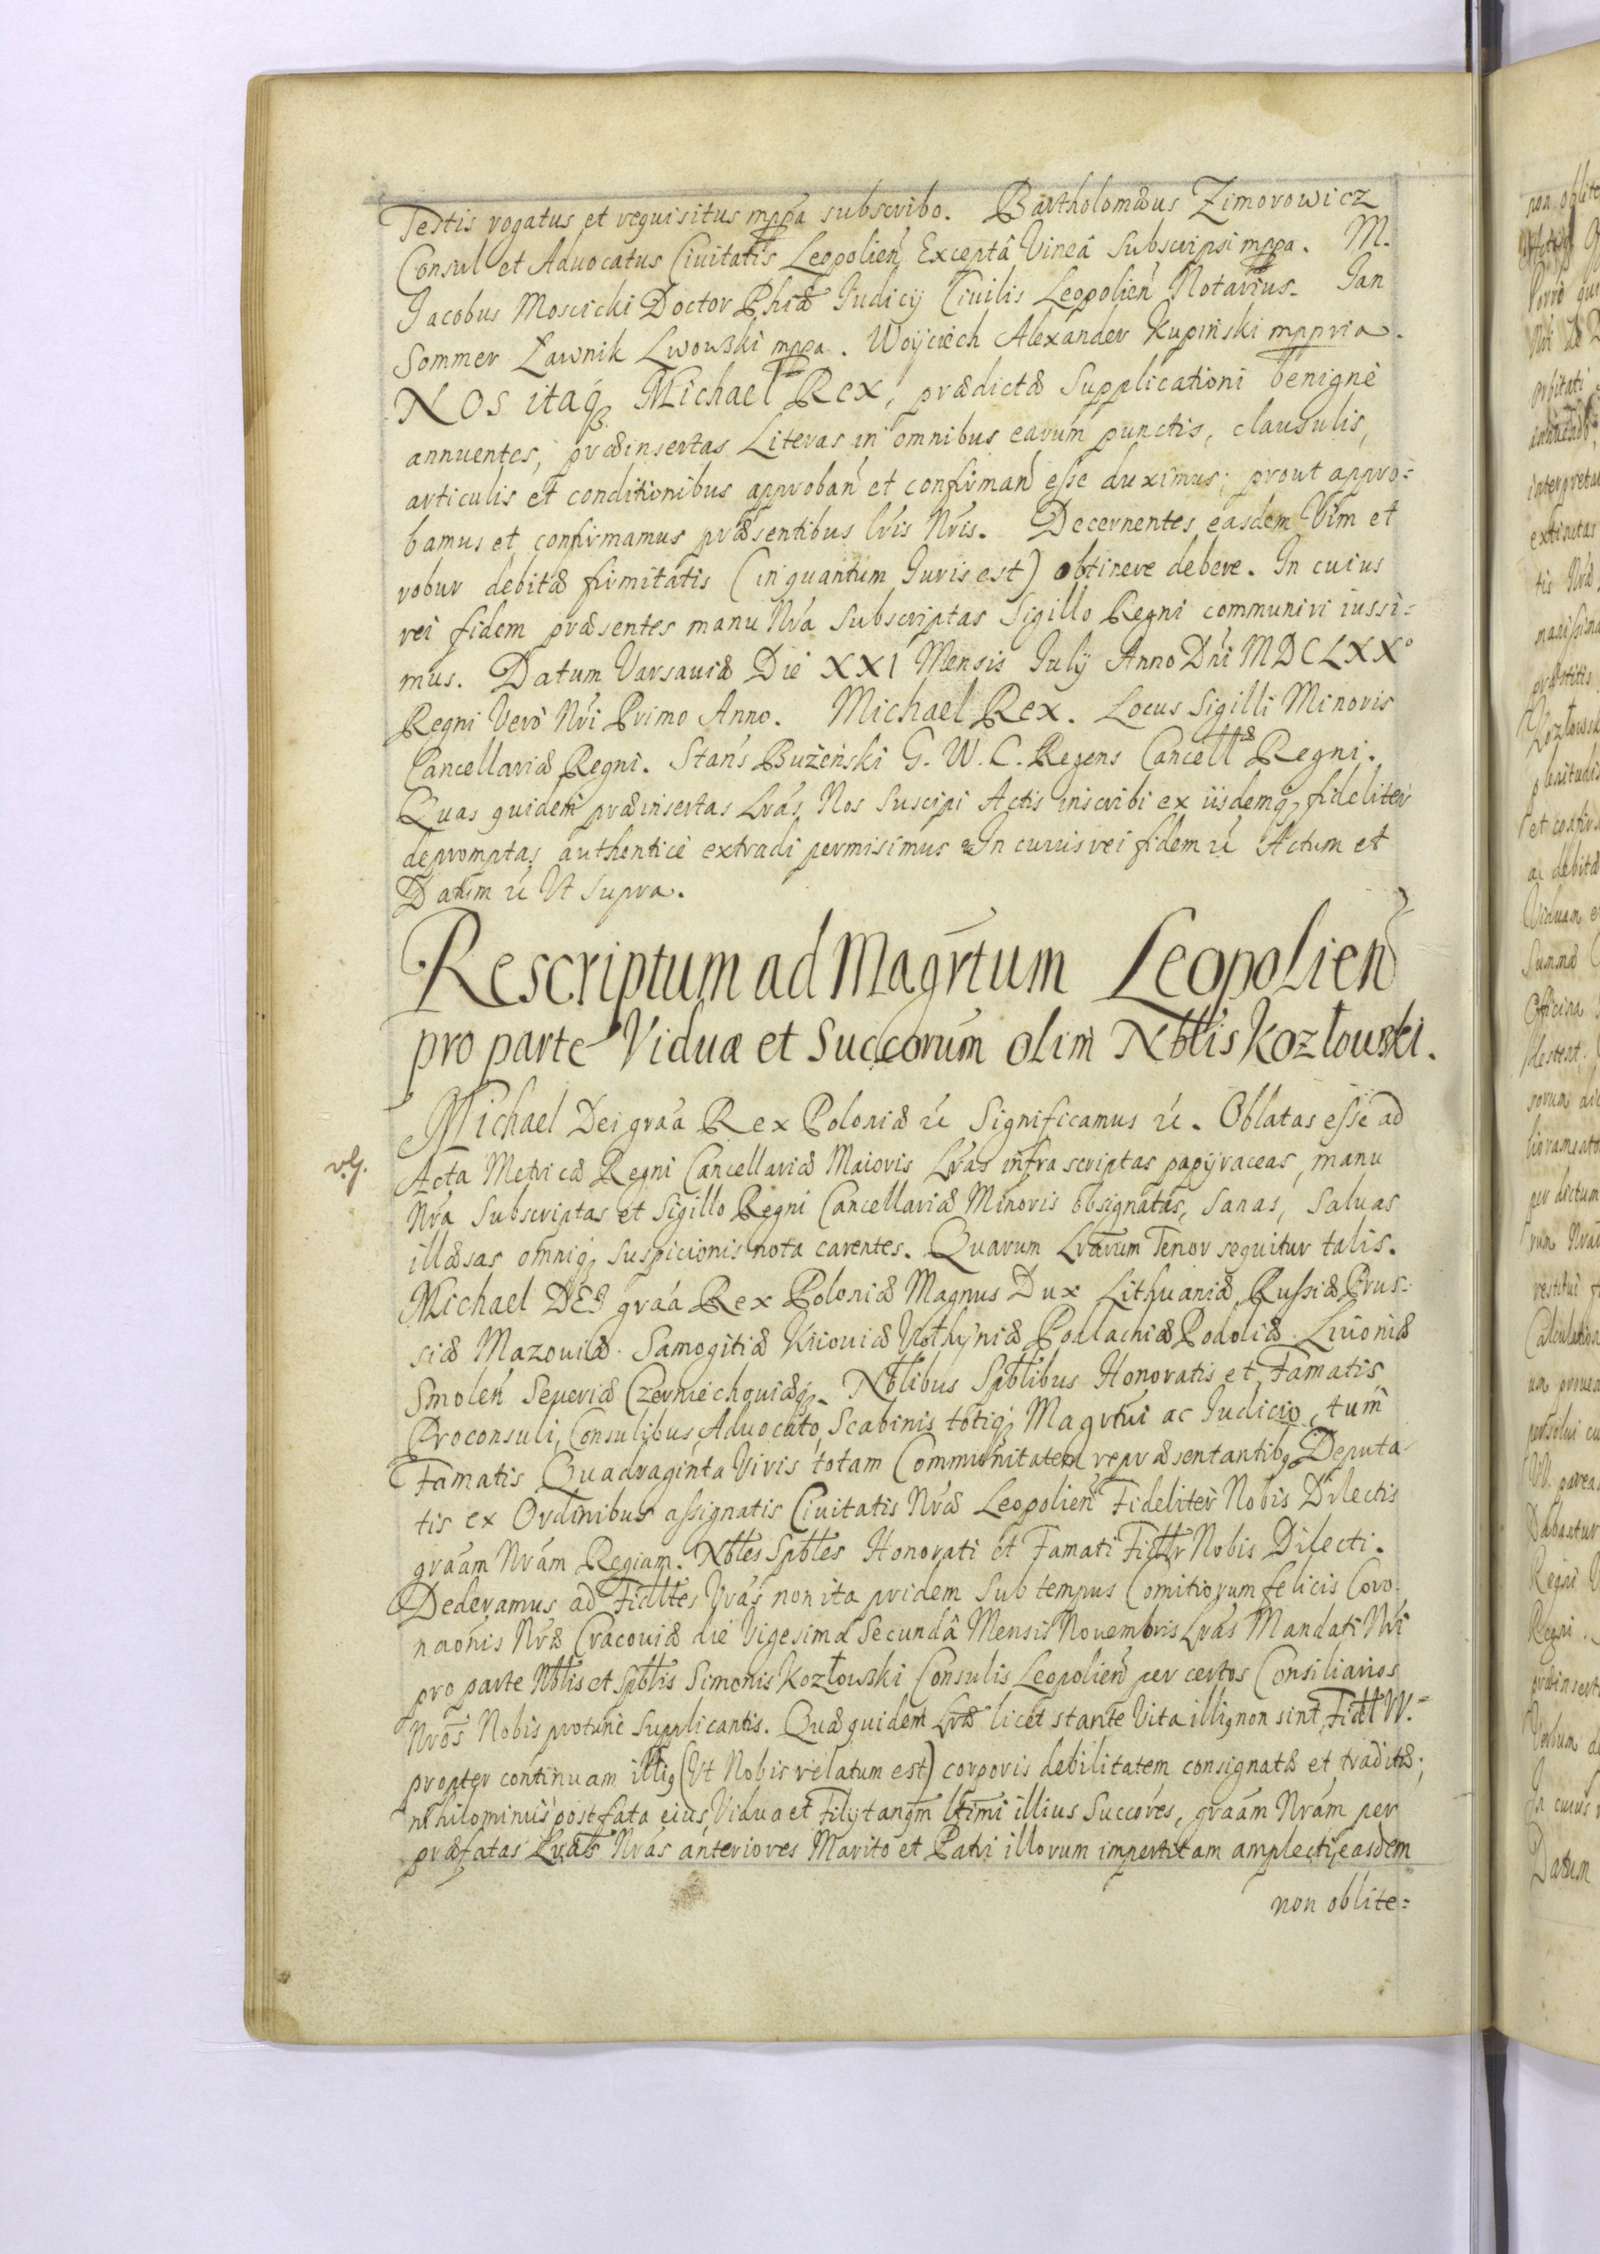 Testis rogatus et requisitus mppa subscribo. Bartholomæus Zimorowicz
Consul et Aduocatus Ciuitatis Leopolień Exceptâ Vineâ subscripsi mppa. M.
Jacobus Moscicki Doctor Phiæ Iudicij Ciuilis Leopolień Notarius. Jan
Sommer Ławnik Lwowski mppa. Woyciech Alexander Kupiński mppria.
NOS itaq₃ Michael Rex, prædictæ supplicationi benignè
annuentes, præinsertas Literas in omnibus earum punctis, clausulis,
articulis et conditionibus approbań et confirmań esse duximus; prout appro=
bamus et confirmamus præsentibus lris Nris. Decernentes easdem Vim et
robur debitæ firmitatis (in quantum Iuris est) obtinere debere. In cuius
rei fidem præsentes manu Nrâ subscriptas Sigillo Regni communiri iussi=
mus. Datum Varsauiæ Die XXI Mensis July Anno Dni MDCLXX°
Regni Verò Nri Primo Anno. Michael Rex. Locus Sigilli Minoris
Cancellariæ Regni. Stans Bużeński G. W. C. Regens Cancellæ Regni.
Quas quidem præinsertas Lrás Nos suscipi Actis inscribi ex iisdemq₃ fideliter
depromptas authenticè extradi permisimus In cuius rei fidem ú Actum et
Datum ú Vt supra.
Rescriptum ad Magrtum Leopolień
pro parte Viduæ et Succorum olim Nbtlis Kozłowski.
Michael Dei graâ Rex Poloniæ ú Significamus ú. Oblatas esse ad
Acta Metricæ Regni Cancellariæ Maioris Lrás infra scriptas papyraceas, manu
Nrâ subscriptas et Sigillo Regni Cancellariæ Minoris obsignatas, sanas, saluas
illæsas omniq₃ suspicionis nota carentes. Quarum Lrarum Tenor sequitur talis.
Michael DEI graâ Rex Poloniæ Magnus Dux Lithuaniæ Russiæ Prus=
siæ Mazouiæ Samogitiæ Kiiouiæ Volhyniæ Podlachiæ Podoliæ Liuoniæ
Smoleń Seueriæ Czerniechouiæq₃. Nbtlibus Spbtlibus Honoratis et Famatis
Proconsuli, Consulibus, Aduocato, Scabinis totiq₃ Magrtui ac Iudicio, tum
Famatis Quadraginta Viris totam Communitatem repræsentantib₉ Deputa=
tis ex Ordinibus assignatis Ciuitatis Nræ Leopolień Fideliter Nobis Dilectis
graâm Nrâm Regiam. Nbtles Spbtles Honorati et Famati Fidtlr Nobis Dilecti.
Dederamus ad Fidltes Vrás non ita pridem sub tempus Comitiorum felicis Coro=
naonis Nræ Cracouiæ die Vigesima Secundâ Mensis Nouembris Lrás Mandati Nri
pro parte Nbtlis et Spbtlis Simonis Kozłowski Consulis Leopolień per certos Consiliarios
Nros Nobis protunc supplicantis. Quæ quidem Lræ licet stante Vita illi₉ non sint Fidtl W.=
propter continuam illi₉ (Vt Nobis relatum est) corporis debilitatem consignatæ et traditæ;
nihilominus post fata eius, Vidua et Filij tanqm ltimi illius Succores, graâm Nrâm per
præfatas Lrás Nrás anteriores Marito et Patri illorum impertitam amplecti, easdem
non oblite=